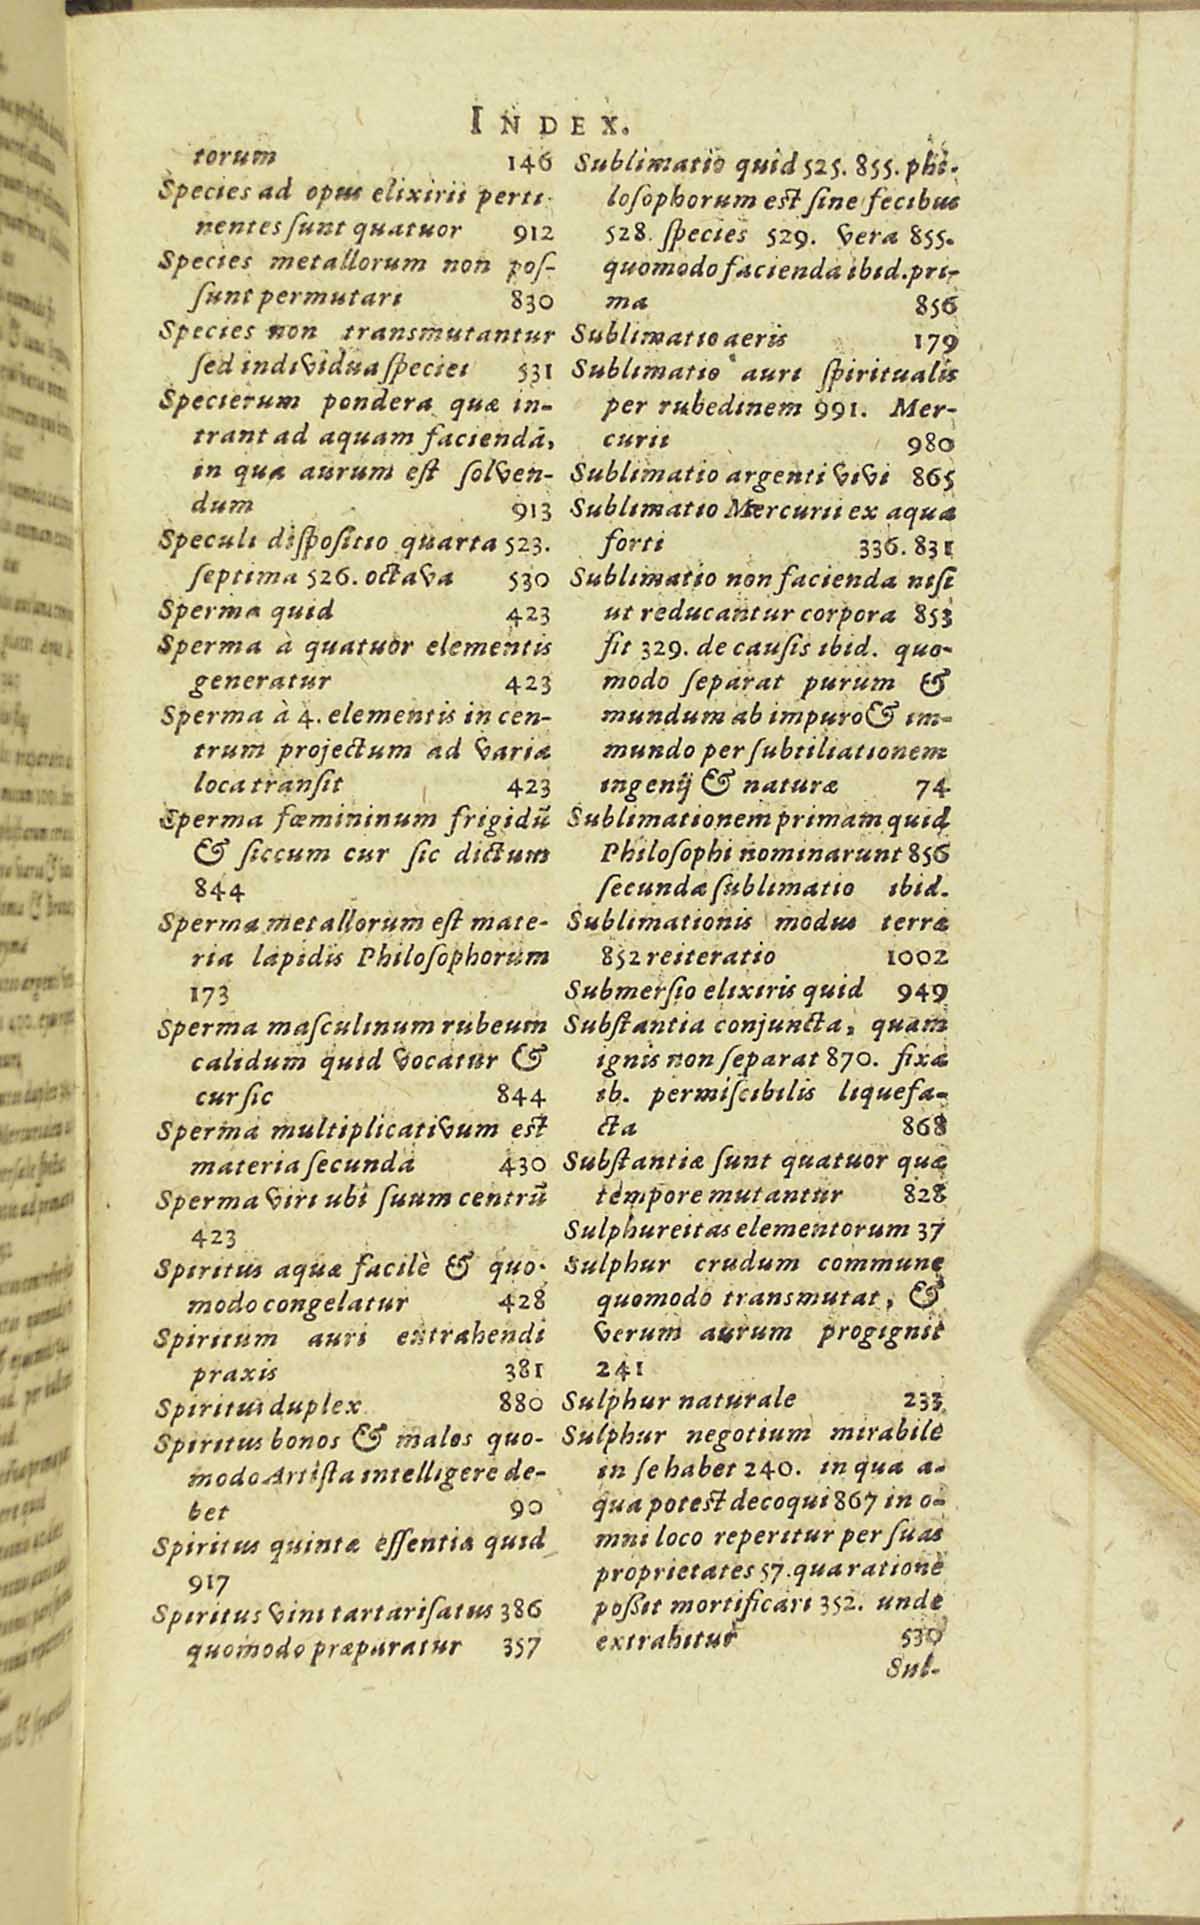 INDEX.
torum 146
Species ad opus elixirii perti-
nentes ſunt quatuor 912
Species metallorum non poſ-
ſunt permutari 830
Species non transmutantur
ſed individua ſpeciei 531
Specierum pondera quæ in-
trant ad aquam faciendā,
in qua aurum est ſolven-
dum 913
Speculi diſpoſitio quarta 523.
ſeptima 526. octava 530
Sperma quid 423
Sperma à quatuor elementis
generatur 423
Sperma à 4. elementis in cen-
trum projectum ad varia
loca tranſit 423
Sperma fœmininum frigidū
& ſiccum cur ſic dictum
844
Sperma metallorum est mate-
ria lapidis Philoſophorum
173
Sperma maſculinum rubeum
calidum quid vocatur &
cur ſic 844
Sperma multiplicativum est
materia ſecunda 430
Sperma viri ubi ſuum centrū
423
Spiritus aquæ facilè & quo-
modo congelatur 428
Spiritum auri extrahendi
praxis 381
Spiritus duplex 880
Spiritus bonos & malos quo-
modo Artiſta intelligere de-
bet 90
Spiritus quintæ eſſentia quid
917
Spiritus vini tartariſatus 386
quomodo præparatur 357
Sublimatio quid 525. 855. phi-
loſophorum est ſine fecibus
528. ſpecies 529. vera 855.
quomodo facienda ibid. pri-
ma 856
Sublimatio aeris 179
Sublimatio auri ſpiritualis
per rubedinem 991. Mer-
curii 980
Sublimatio argenti vivi 865
Sublimatio Mercurii ex aqua
forti 336. 831
Sublimatio non facienda niſi
ut reducantur corpora 853
fit 329. de cauſis ibid. quo-
modo ſeparat purum &
mundum ab impuro & im-
mundo per ſubtiliationem
ingenij & naturæ 74
Sublimationem primam quid
Philoſophi nominarunt 856
ſecundæ ſublimatio ibid.
Sublimationis modus terræ
852 reiteratio 1002
Submerſio elixiris quid 949
Subſtantia conjuncta, quam
ignis non ſeparat 870. fixa
ib. permiſcibilis liquefa-
cta 868
Subſtantiæ ſunt quatuor quæ
tempore mutantur 828
Sulphureitas elementorum 37
Sulphur crudum commune
quomodo transmutat, &
verum aurum progignit
241
Sulphur naturale 233
Sulphur negotium mirabile
in ſe habet 240. in qua a-
qua potest decoqui 867 in o-
mni loco reperitur per ſuas
proprietates 57. qua ratione
poſſit mortificari 352. unde
extrahitur 530
Sul-